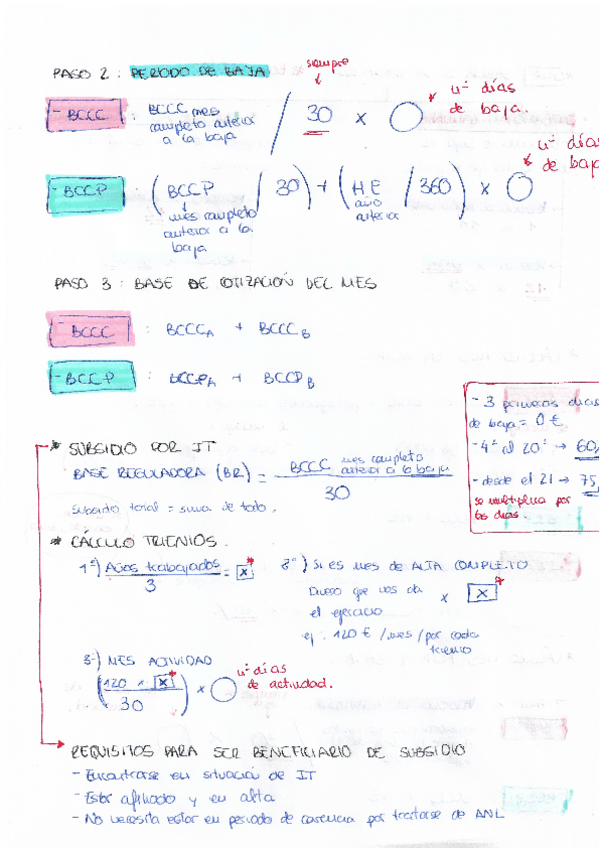 PASO 2 : PERIODO DE BAJA
siempre
- BCCC : BCCC mes / 30 x
completo anterior
a la baja
nº días
de baja.
- BCCP : (BCCP / 30) + (HE / 360) x
mes completo
anterior a la
baja
año
anterior
nº días
de baja
PASO 3 : BASE DE COTIZACIÓN DEL MES
- BCCC : BCCC A + BCCC B
- BCCP : BCCP A + BCCP B
- 3 primeros días
de baja = 0 €
- 4º al 20º → 60,
- desde el 21 → 75,
se multiplica por
los días.
* SUBSIDIO POR IT
BASE REGULADORA (BR) = BCCC mes completo anterior a la baja
30
Subsidio total = suma de todo.
* CÁLCULO TRIENIOS.
1º) Años trabajados = x *
3
2º) SI ES MES DE ALTA COMPLETO
Dinero que nos da x x *
el ejercicio
ej : 120 € /mes /por cada
trienio
3º) MES ACTIVIDAD
(120 x x *) x
30
nº días
de actividad.
REQUISITOS PARA SER BENEFICIARIO DE SUBSIDIO
- Encontrarse en situación de IT
- Estar afiliado y en alta
- No necesita estar en periodo de carencia por tratarse de ANL